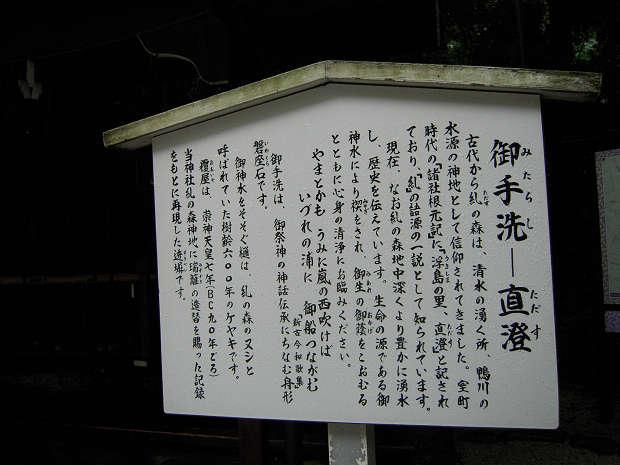 御手洗―直澄
みたらし
ただす
古代から糺の森は、清水の湧く所、鴨川の
ただす
水源の神地として信仰されてきました。室町
時代の「諸社根元記」に「浮島の里、直澄」と記され
ており、「糺」の語源の一説として知られています。
現在、なお糺の森地中深くより豊かに湧水
し、歴史を伝えています。生命の源である御
神水により禊をされ、御生の御蔭をこおむる
みそぎ
みあれ
おかげ
とともに心身の清浄にお臨みください。
やまとかも うみに嵐の西吹けば
いづれの浦に 御船つながむ
「新古今和歌集」
御手洗は、御祭神の神話伝承にちなむ舟形
磐座石です。
いわくら
御神水をそそぐ樋は、糺の森のヌシと
呼ばれていた樹齢六〇〇年のケヤキです。
覆屋は、崇神天皇七年(BC九〇年ごろ)
おおいや
当神社糺の森神地に瑞籬の造替を賜った記録
をもとに再現した
です。